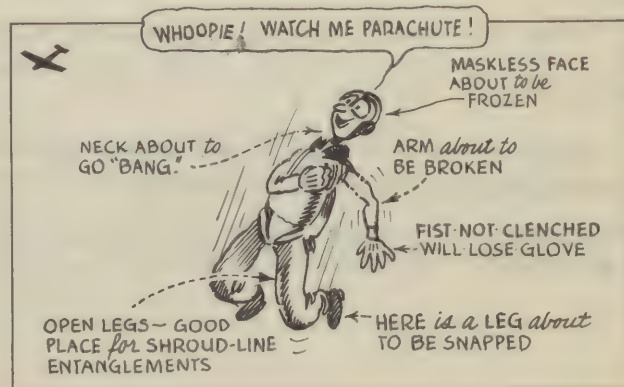 WHOOPIE! WATCH ME PARACHUTE!
MASKLESS FACE
ABOUT to be
FROZEN
NECK ABOUT to
GO "BANG."
ARM about to
BE BROKEN
FIST-NOT-CLENCHED
WILL LOSE GLOVE
OPEN LEGS~GOOD
PLACE for SHROUD-LINE
ENTANGLEMENTS
HERE is a LEG about
TO BE SNAPPED